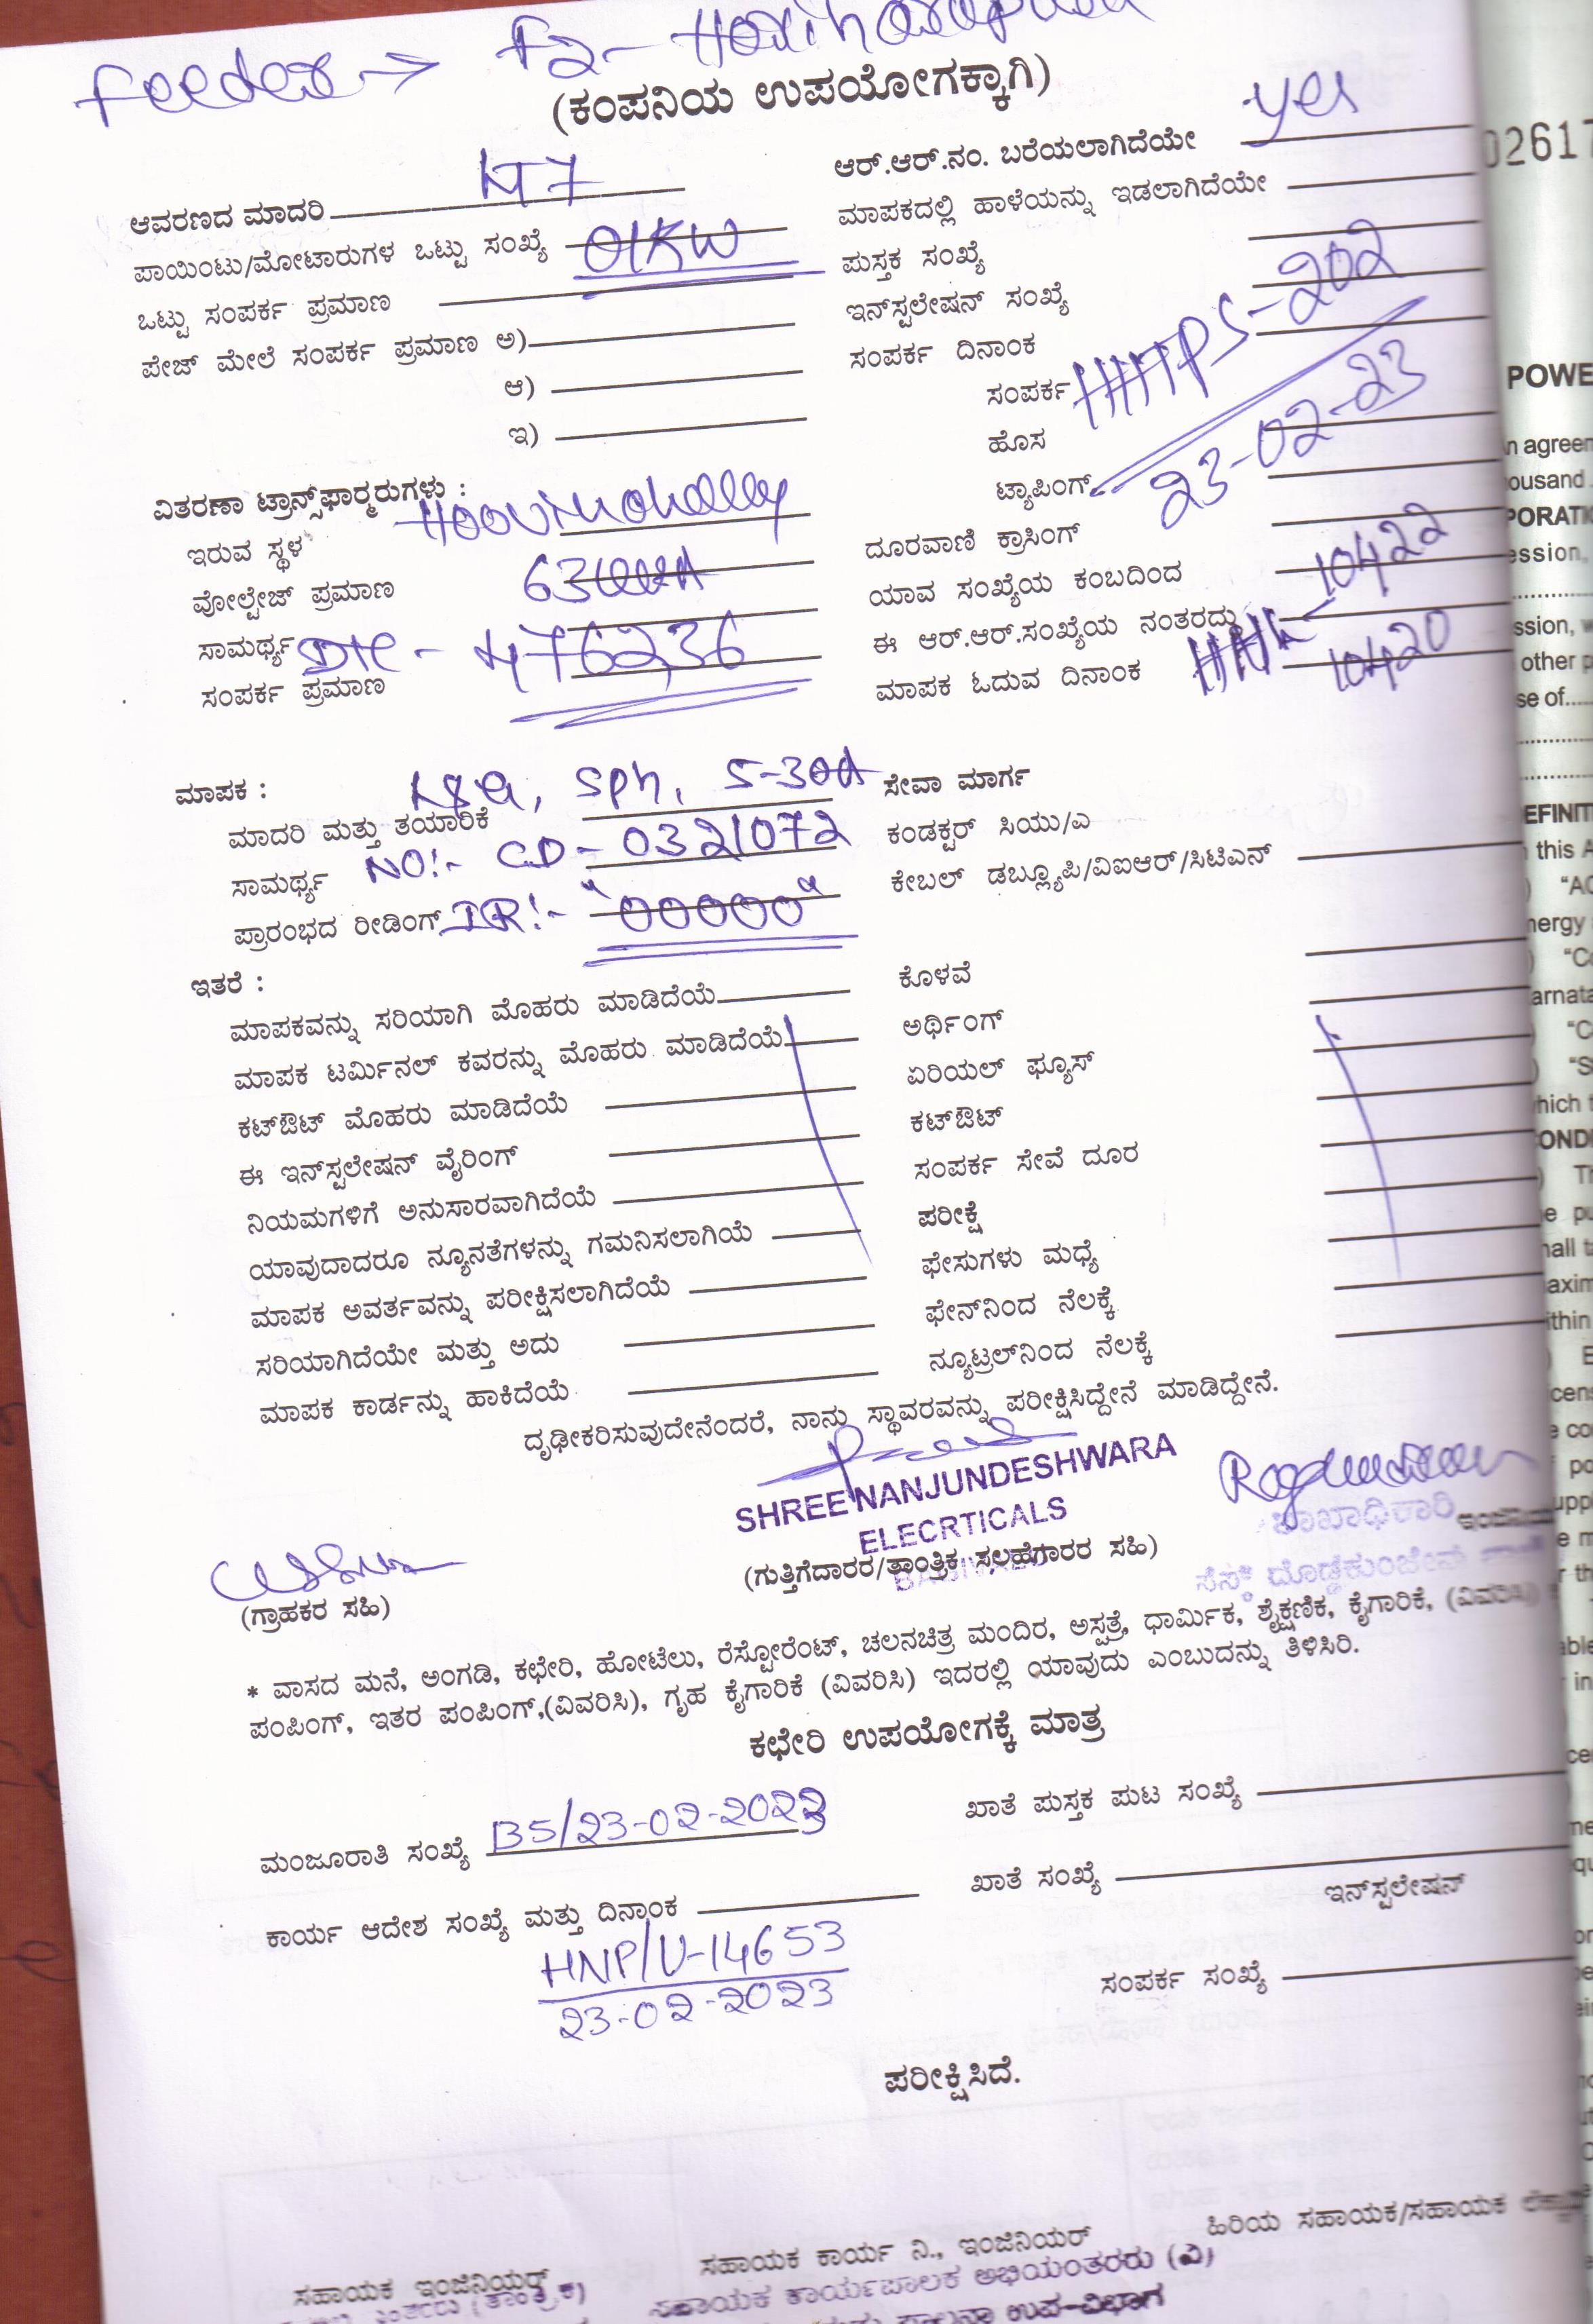 Feeder → F2-
(ಕಂಪನಿಯ ಉಪಯೋಗಕ್ಕಾಗಿ)
ಆವರಣದ ಮಾದರಿ LT7
ಪಾಯಿಂಟು/ಮೋಟಾರುಗಳ ಒಟ್ಟು ಸಂಖ್ಯೆ 01KW
ಒಟ್ಟು ಸಂಪರ್ಕ ಪ್ರಮಾಣ
ಪೇಜ್ ಮೇಲೆ ಸಂಪರ್ಕ ಪ್ರಮಾಣ ಅ)
ಆ)
ಇ)
ಆರ್.ಆರ್.ನಂ. ಬರೆಯಲಾಗಿದೆಯೇ yes
ಮಾಪಕದಲ್ಲಿ ಹಾಳೆಯನ್ನು ಇಡಲಾಗಿದೆಯೇ
ಪುಸ್ತಕ ಸಂಖ್ಯೆ
ಇನ್‌ಸ್ಟಲೇಷನ್ ಸಂಖ್ಯೆ
ಸಂಪರ್ಕ ದಿನಾಂಕ
ಸಂಪರ್ಕ HHTPS-202
ಹೊಸ
ಟ್ಯಾಪಿಂಗ್ 23-02-23
ವಿತರಣಾ ಟ್ರಾನ್ಸ್‌ಫಾರ್ಮರುಗಳು :
ಇರುವ ಸ್ಥಳ
ವೋಲ್ಟೇಜ್ ಪ್ರಮಾಣ
ಸಾಮರ್ಥ್ಯ DTC - 476236
ಸಂಪರ್ಕ ಪ್ರಮಾಣ
ದೂರವಾಣಿ ಕ್ರಾಸಿಂಗ್
ಯಾವ ಸಂಖ್ಯೆಯ ಕಂಬದಿಂದ
ಈ ಆರ್.ಆರ್.ಸಂಖ್ಯೆಯ ನಂತರದ್ದು 10422
ಮಾಪಕ ಓದುವ ದಿನಾಂಕ 10420
ಮಾಪಕ : L&G, Sph, 5-30A
ಮಾದರಿ ಮತ್ತು ತಯಾರಿಕೆ
ಸಾಮರ್ಥ್ಯ NO:- CD - 0321072
ಪ್ರಾರಂಭದ ರೀಡಿಂಗ್ IR:- "00000"
ಸೇವಾ ಮಾರ್ಗ
ಕಂಡಕ್ಟರ್ ಸಿಯು/ಎ
ಕೇಬಲ್ ಡಬ್ಲ್ಯೂಪಿ/ವಿಐಆರ್/ಸಿಟಿಎನ್
ಇತರೆ :
ಮಾಪಕವನ್ನು ಸರಿಯಾಗಿ ಮೊಹರು ಮಾಡಿದೆಯೆ
ಮಾಪಕ ಟರ್ಮಿನಲ್ ಕವರನ್ನು ಮೊಹರು ಮಾಡಿದೆಯೆ
ಕಟ್‌ಔಟ್ ಮೊಹರು ಮಾಡಿದೆಯೆ
ಈ ಇನ್‌ಸ್ಟಲೇಷನ್ ವೈರಿಂಗ್
ನಿಯಮಗಳಿಗೆ ಅನುಸಾರವಾಗಿದೆಯೆ
ಯಾವುದಾದರೂ ನ್ಯೂನತೆಗಳನ್ನು ಗಮನಿಸಲಾಗಿಯೆ
ಮಾಪಕ ಅವರ್ತವನ್ನು ಪರೀಕ್ಷಿಸಲಾಗಿದೆಯೆ
ಸರಿಯಾಗಿದೆಯೇ ಮತ್ತು ಅದು
ಮಾಪಕ ಕಾರ್ಡನ್ನು ಹಾಕಿದೆಯೆ
ಕೊಳವೆ
ಅರ್ಥಿಂಗ್
ಏರಿಯಲ್ ಫ್ಯೂಸ್
ಕಟ್‌ಔಟ್
ಸಂಪರ್ಕ ಸೇವೆ ದೂರ
ಪರೀಕ್ಷೆ
ಫೇಸುಗಳು ಮಧ್ಯೆ
ಫೇನ್‌ನಿಂದ ನೆಲಕ್ಕೆ
ನ್ಯೂಟ್ರಲ್‌ನಿಂದ ನೆಲಕ್ಕೆ
ದೃಢೀಕರಿಸುವುದೇನೆಂದರೆ, ನಾನು ಸ್ಥಾವರವನ್ನು ಪರೀಕ್ಷಿಸಿದ್ದೇನೆ ಮಾಡಿದ್ದೇನೆ.
SHREE NANJUNDESHWARA
ELECRTICALS
(ಗುತ್ತಿಗೆದಾರರ/ತಾಂತ್ರಿಕ ಸಲಹೆಗಾರರ ಸಹಿ)
ಶಾಖಾಧಿಕಾರಿ
(ಗ್ರಾಹಕರ ಸಹಿ)
* ವಾಸದ ಮನೆ, ಅಂಗಡಿ, ಕಛೇರಿ, ಹೋಟೆಲು, ರೆಸ್ಟೋರೆಂಟ್, ಚಲನಚಿತ್ರ ಮಂದಿರ, ಅಸ್ಪತ್ರೆ, ಧಾರ್ಮಿಕ, ಶೈಕ್ಷಣಿಕ, ಕೈಗಾರಿಕೆ, (ವಿವರಿಸಿ)
ಪಂಪಿಂಗ್, ಇತರ ಪಂಪಿಂಗ್,(ವಿವರಿಸಿ), ಗೃಹ ಕೈಗಾರಿಕೆ (ವಿವರಿಸಿ) ಇದರಲ್ಲಿ ಯಾವುದು ಎಂಬುದನ್ನು ತಿಳಿಸಿರಿ.
ಕಛೇರಿ ಉಪಯೋಗಕ್ಕೆ ಮಾತ್ರ
ಮಂಜೂರಾತಿ ಸಂಖ್ಯೆ 135/23-02-2023
ಖಾತೆ ಪುಸ್ತಕ ಪುಟ ಸಂಖ್ಯೆ
ಕಾರ್ಯ ಆದೇಶ ಸಂಖ್ಯೆ ಮತ್ತು ದಿನಾಂಕ
ಖಾತೆ ಸಂಖ್ಯೆ
ಇನ್‌ಸ್ಟಲೇಷನ್
HNP/U-14653
23-02-2023
ಸಂಪರ್ಕ ಸಂಖ್ಯೆ
ಪರೀಕ್ಷಿಸಿದೆ.
ಸಹಾಯಕ ಇಂಜಿನಿಯರ್
ಸಹಾಯಕ ಕಾರ್ಯ ನಿ., ಇಂಜಿನಿಯರ್
ಹಿರಿಯ ಸಹಾಯಕ/ಸಹಾಯಕ
ಸಹಾಯಕ ಕಾರ್ಯಪಾಲಕ ಅಭಿಯಂತರರು (ವಿ)
ಉಪ-ವಿಭಾಗ
02617
POWE